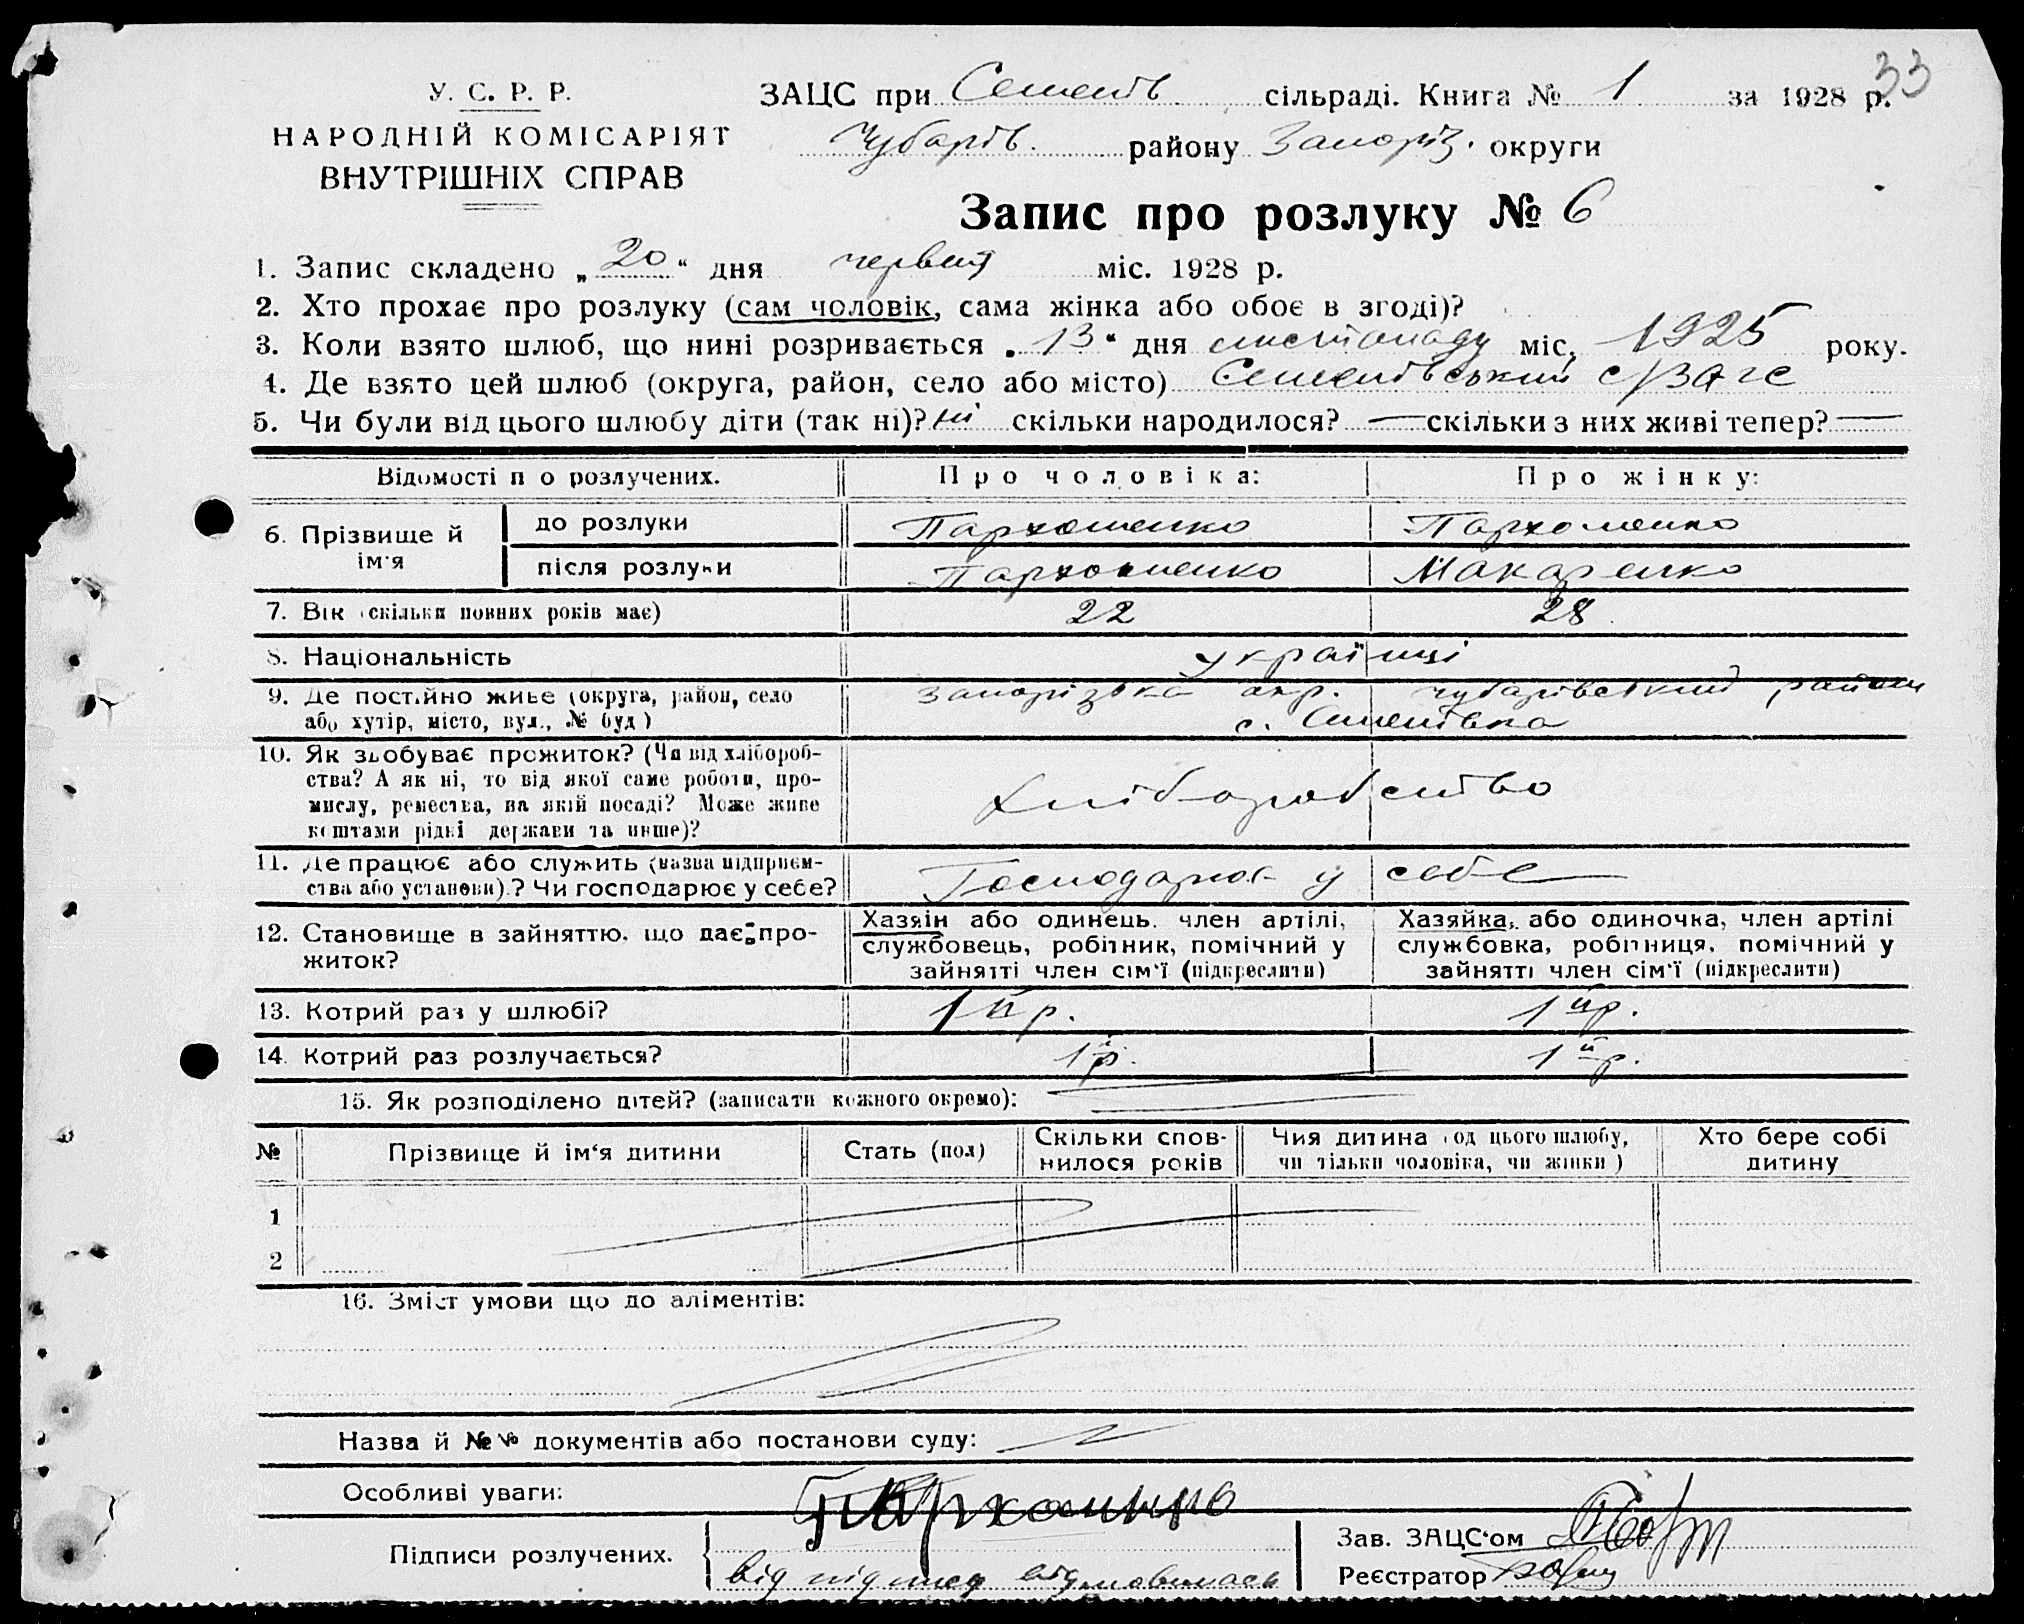 33
У. С. Р. Р.
НАРОДНІЙ КОМІСАРІЯТ
ВНУТРІШНІХ СПРАВ
ЗАЦС при Семенів сільраді. Книга № 1 за 1928 р.
Чубарів. району Запоріз. округи
Запис про розлуку № 6
1. Запис складено „20“ дня червня міс. 1928 р.
2. Хто прохає про розлуку (сам чоловік, сама жінка або обоє в згоді)?
3. Коли взято шлюб, що нині розривається „13“ дня листопаду міс. 1925 року.
4. Де взято цей шлюб (округа, район, село або місто) Семенівський с/ЗАГС
5. Чи були від цього шлюбу діти (так ні)? ні скільки народилося? — скільки з них живі тепер? —
Відомості п о розлучених. Про чоловіка: Про жінку:
6. Прізвище й ім'я до розлуки Пархоменко Пархоменко
після розлуки Пархоменко Макаренко
7. Вік (скільки повних років має) 22 28
8. Національність українці
9. Де постійно живе (округа, район, село або хутір, місто, вул., № буд) Запорізька окр. Чубарівський район
с. Семенівка
10. Як здобуває прожиток? (Чи від хлібороб-
ства? А як ні, то від якої саме роботи, про-
мислу, ремества, на якій посаді? Може живе
коштами рідні держави та инше)? Хліборобство
11. Де працює або служить (назва підприєм-
ства або установи).? Чи господарює у себе? Господарює у себе
12. Становище в зайняттю, що дає про-
житок?
Хазяін або одинець. член артілі,
службовець, робітник, помічний у
зайнятті член сім'ї (підкреслити)
Хазяйка, або одиночка, член артілі
службовка, робітниця, помічний у
зайнятті член сім'ї (підкреслити)
13. Котрий раз у шлюбі? 1й р. 1й р.
14. Котрий раз розлучається? 1й р. 1й р.
15. Як розподілено дітей? (записати кожного окремо):
№ Прізвище й ім‘я дитини Стать (пол) Скільки спов-
нилося років Чия дитина (од цього шлюбу,
чи тільки чоловіка, чи жінки) Хто бере собі
дитину
1
2
16. Зміст умови що до аліментів:
Назва й №№ документів або постанови суду:
Особливі уваги:
Підписи розлучених. Пархоменко
від підпису відмовилась
Зав. ЗАЦС‘ом
Реєстратор